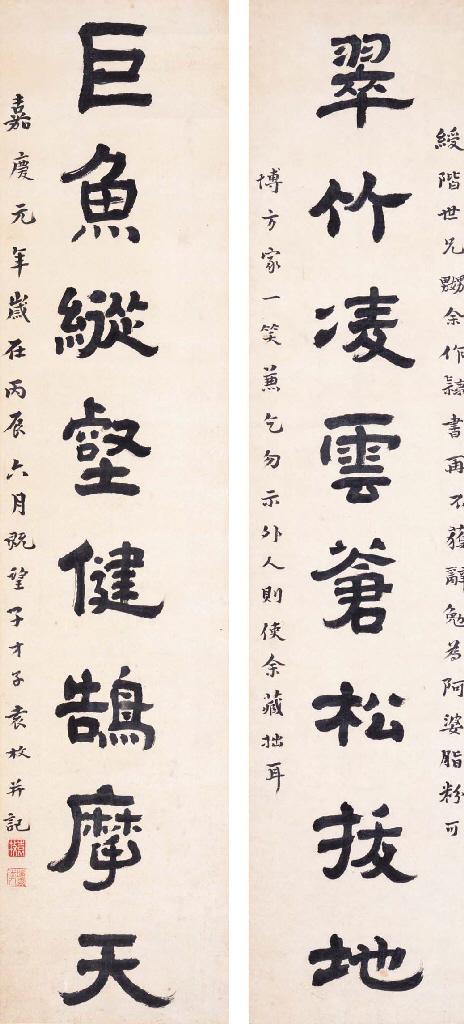 綬階世兄嬲余作隸書再不獲辭勉為阿婆脂粉可
翠竹凌雲蒼松拔地
博方家一笑兼乞勿示外人則使余藏拙耳
巨魚縱壑健鵠摩天
嘉慶元年歲在丙辰六月既望子才子袁枚并記